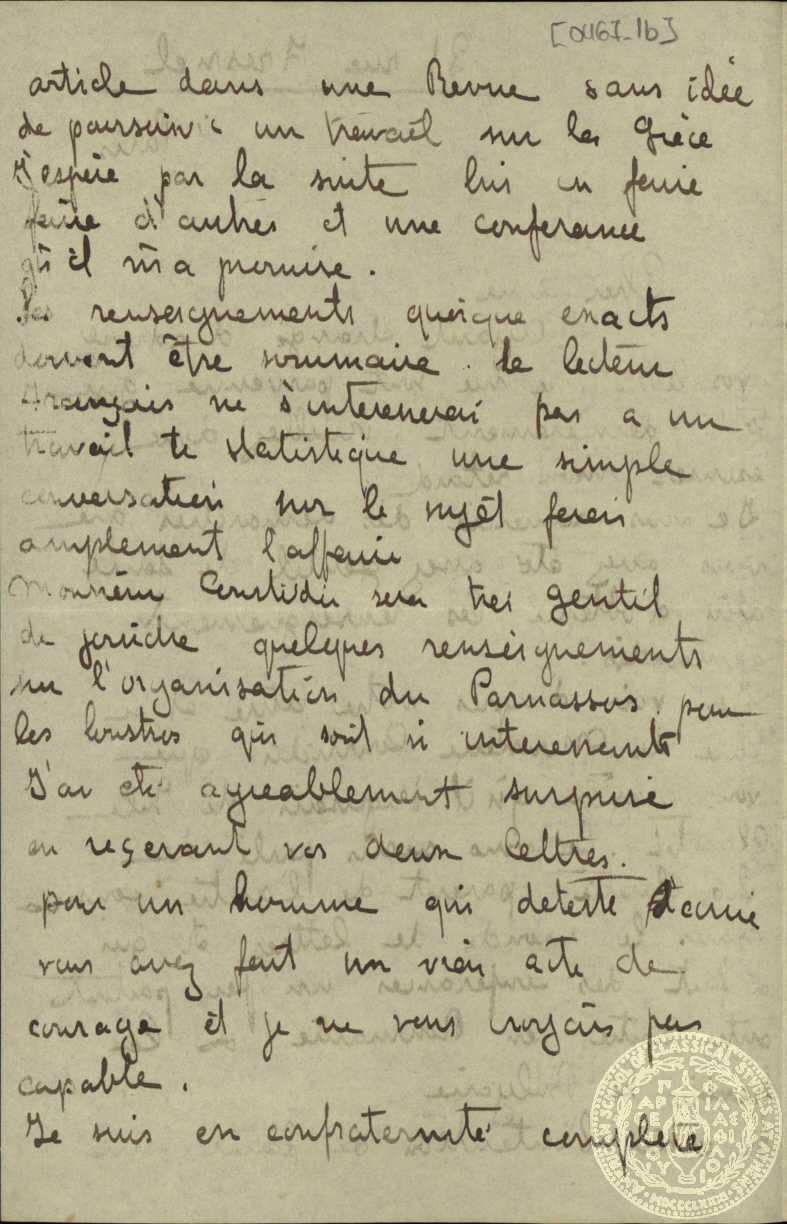 [0467-1b]
article dans une Revue sans idée
de poursuivre un travail sur la Grèce
J'espère par la suite lui en ferie
faire d'autres et une conferance
qu'il m'a promise.
Les renseignements quoique exacts
doivent être sommaire. le lecteur
Français ne s'interenerai pas a un
travail te statistique une simple
conversation sur le sujet ferai
amplement l'affaire
Monsieur sera tres gentil
de joindre quelques renseignements
sur l'organisation du Parnassos. pour
les loustros qui sont si interenants
J'ai eté agreablement surprise
en reçevant vos deux lettres.
pour un homme qui deteste d'ecrire
vous avez fait un vrai acte de
courage et je ne vous croyais pas
capable.
Je suis en confraternité complete
AMERICAN SCHOOL OF CLASSICAL STUDIES AT ATHENS
MDCCCLXXXI
ΠΑΡΘΕΝΟΥ ΦΙΛΑΣ ΦΙΛΟΙ